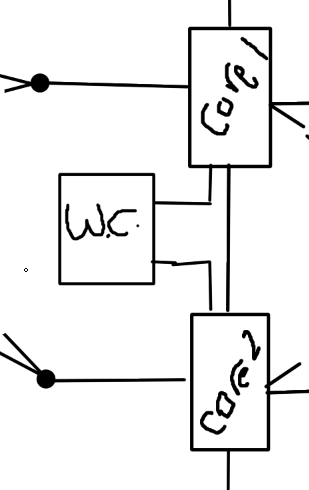 Core 1
W.C.
Core 2